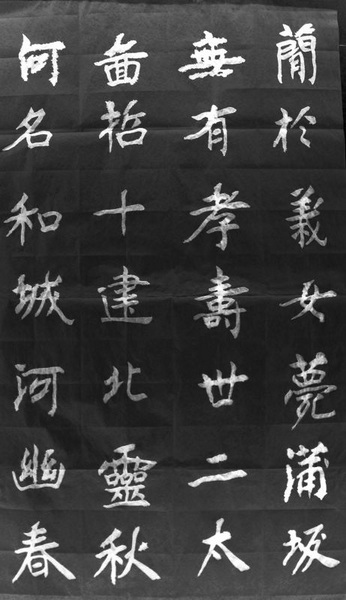 簡於義女薨蒲坂
無有孝壽世二太
十建北靈秋
何名和城河幽春